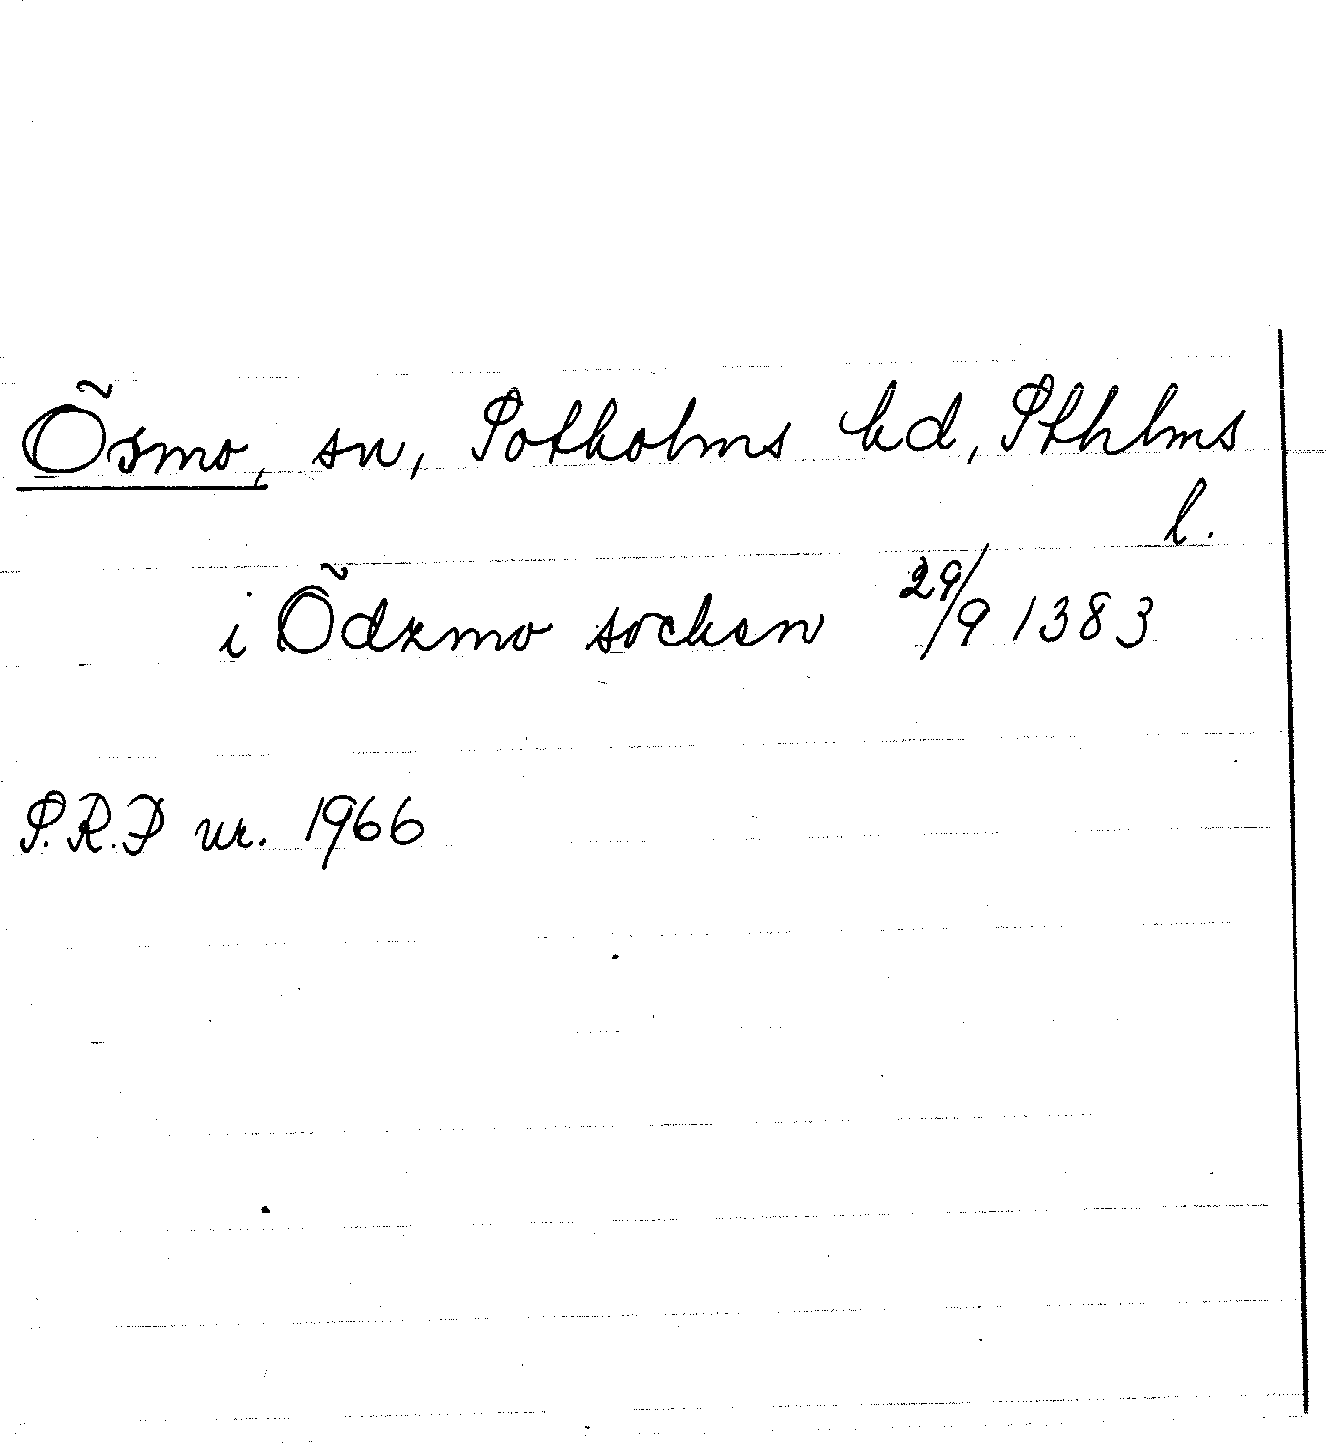 Ösmo, sn, Sotholms hd, Sthlms
l.
i Ödzmo socken 29/9 1383
S.R.P nr. 1966